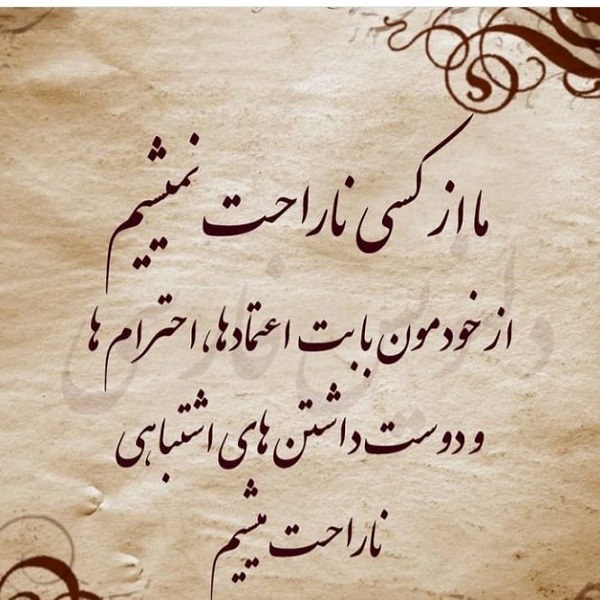 ما از کسی ناراحت نمیشیم
از خودمون بابت اعتمادها، احترام ها
و دوست داشتن های اشتباهی
ناراحت میشیم